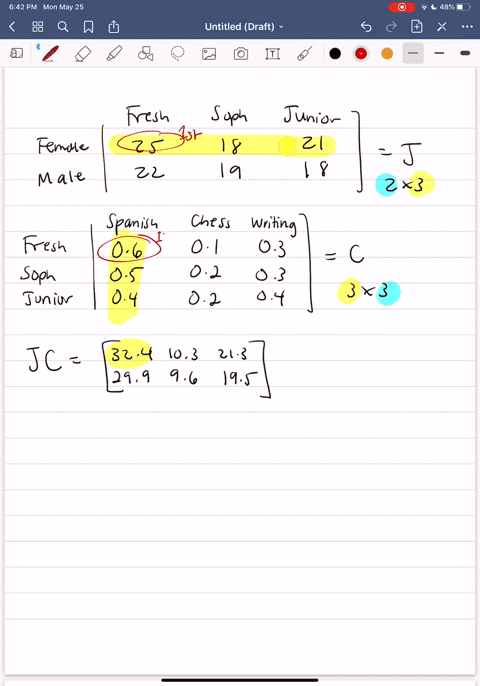 6:42 PM Mon May 25
48%
Untitled (Draft)
Fresh Soph Junior
1st
Female 25 18 21
= J
Male 22 19 18
2 x 3
Spanish Chess Writing
Fresh 0.6 0.1 0.3
= C
Soph 0.5 0.2 0.3
Junior 0.4 0.2 0.4
3 x 3
JC = 32.4 10.3 21.3
29.9 9.6 19.5